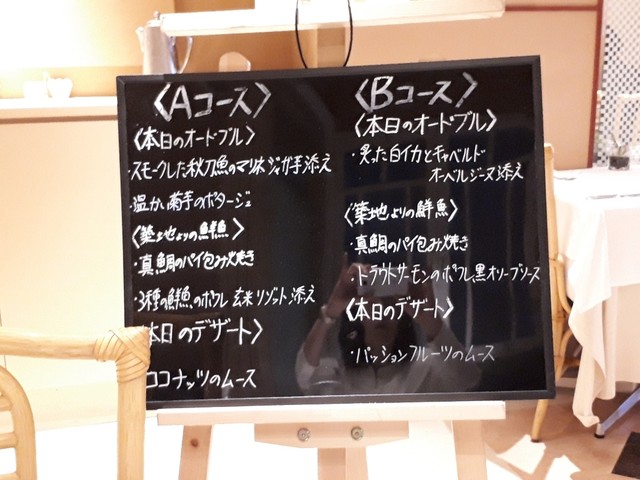 〈Aコース〉
〈本日のオードブル〉
・スモークした秋刀魚のマリネ ジャガ芋添え
・温かい菊芋のポタージュ
〈築地よりの鮮魚〉
・真鯛のパイ包み焼き
・3種の鮮魚のポワレ 玄米リゾット添え
本日のデザート〉
ココナッツのムース
〈Bコース〉
〈本日のオードブル〉
・炙った白イカとキャベルド
オーベルジーヌ添え
〈築地よりの鮮魚〉
・真鯛のパイ包み焼き
・トラウトサーモンのポワレ、黒オリーブソース
〈本日のデザート〉
・パッションフルーツのムース